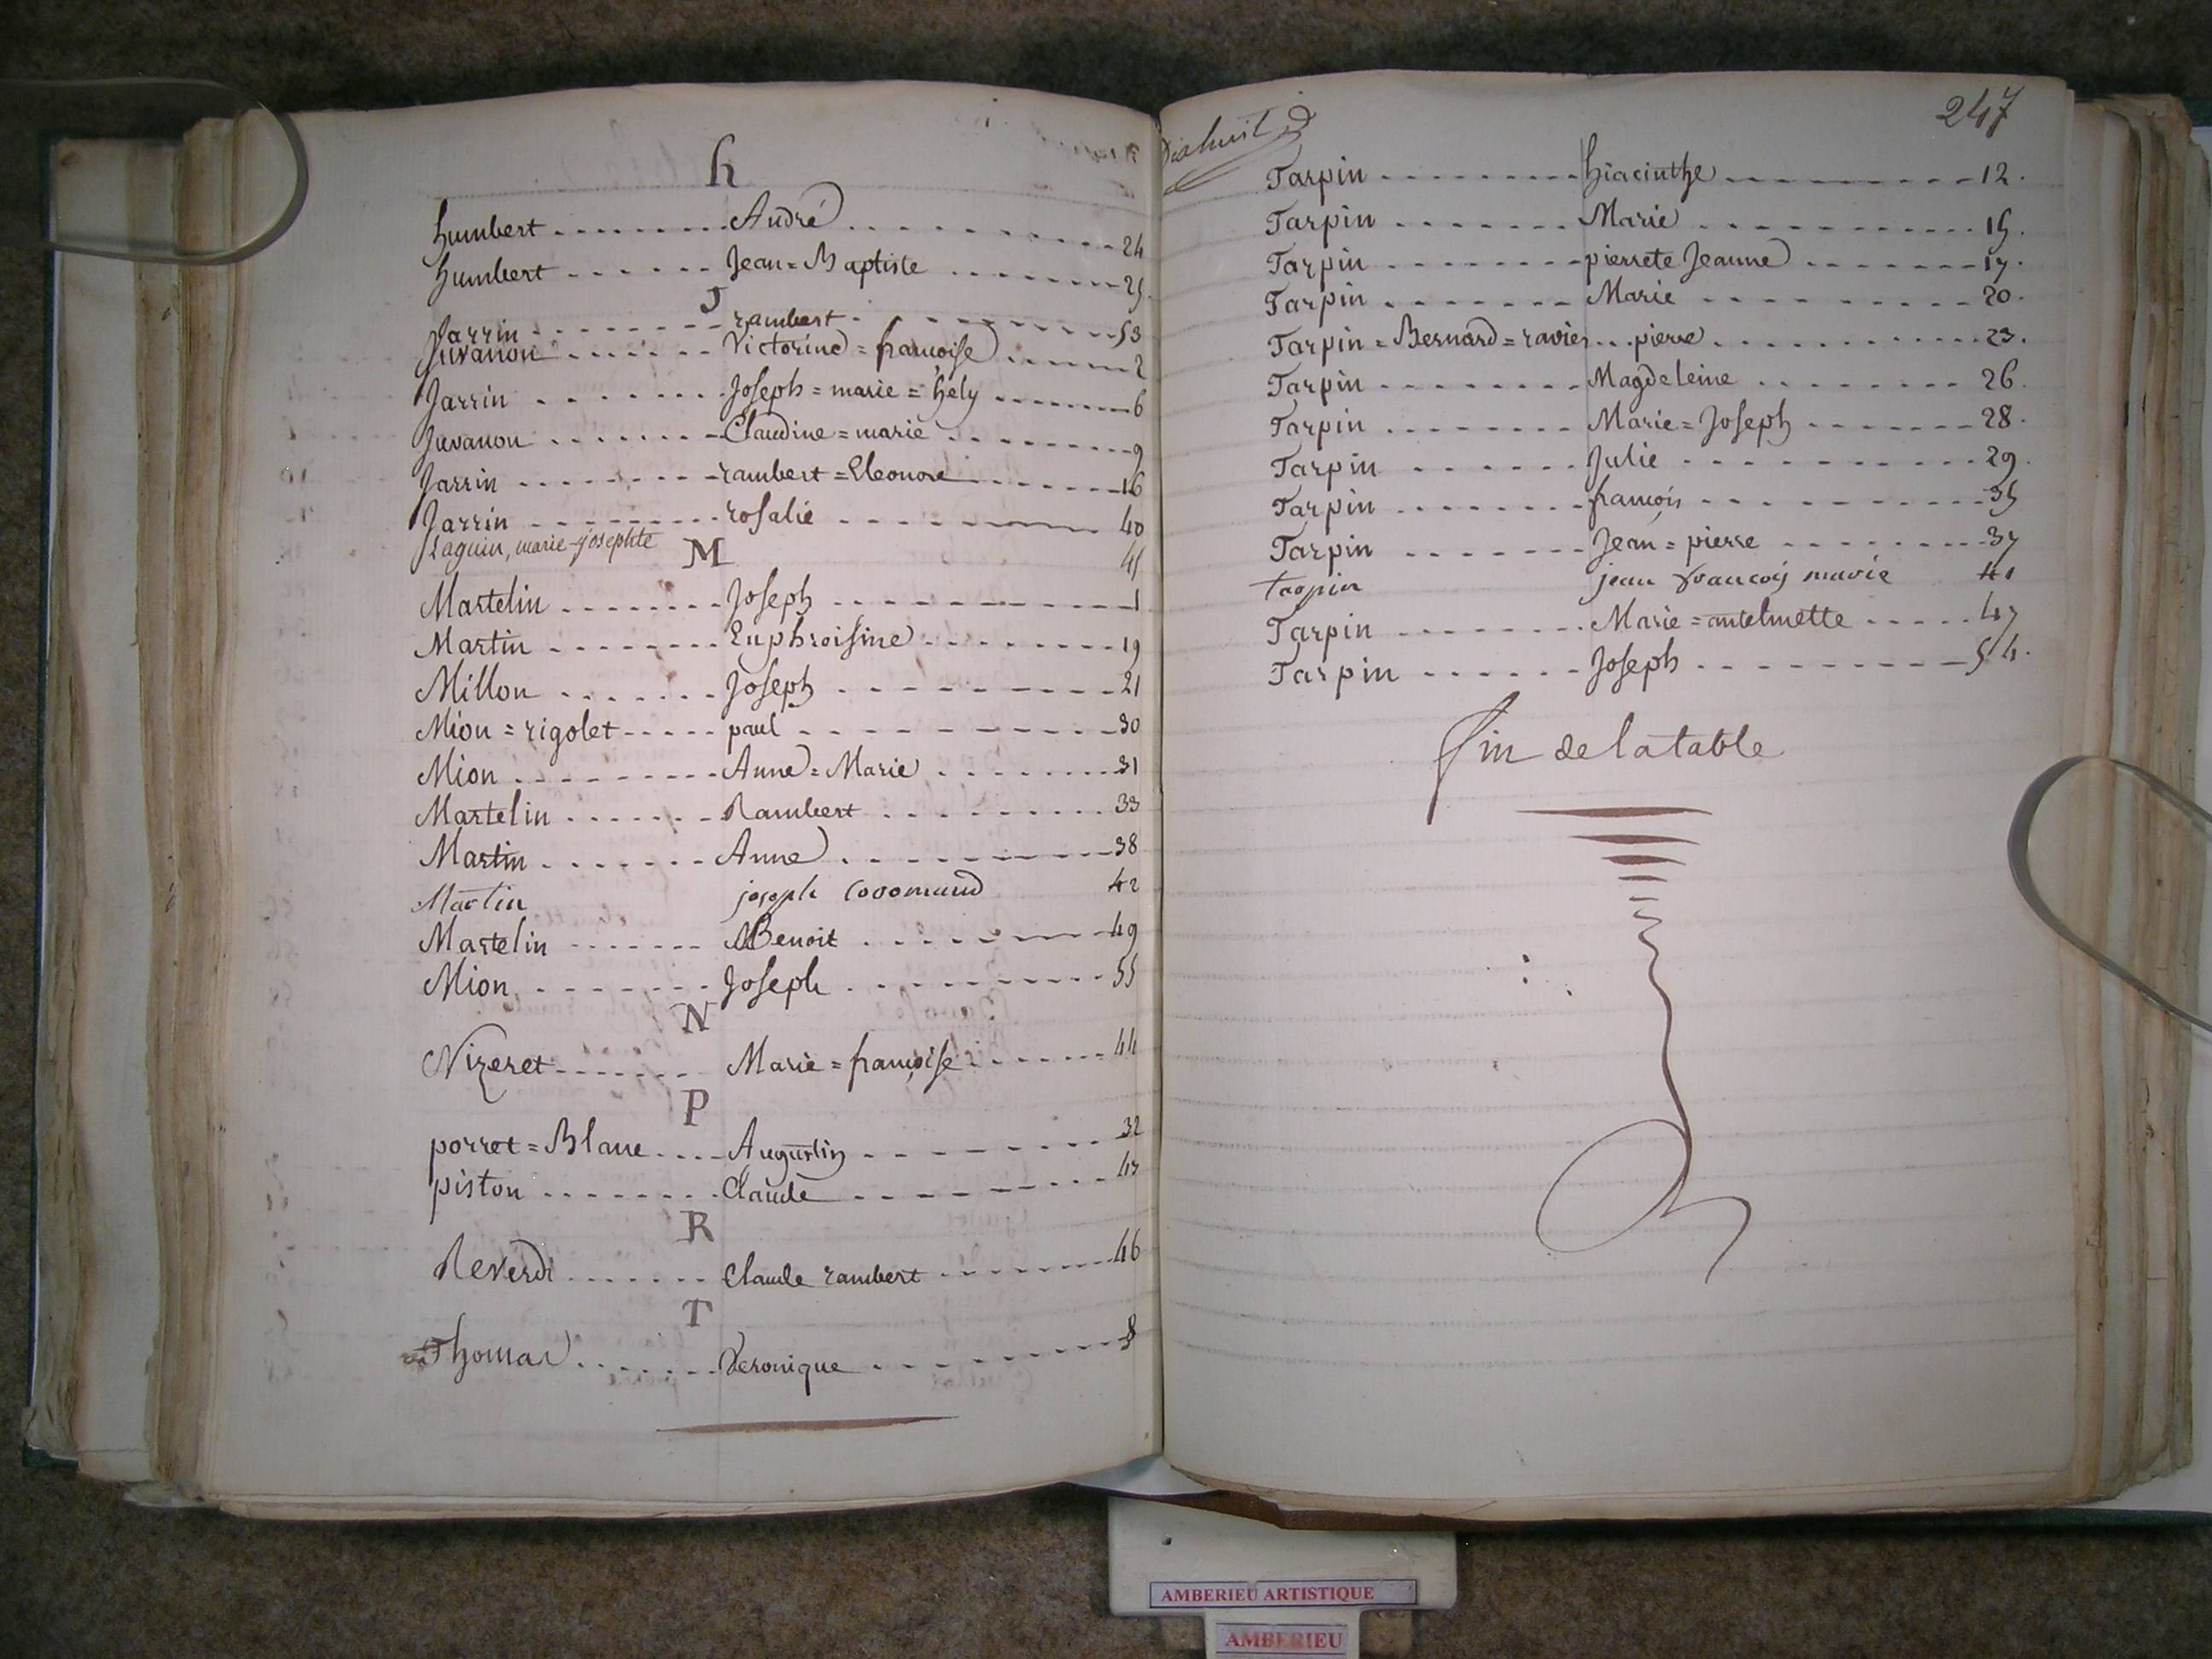 h
humbert ......... André ......... 24
humbert ...... Jean=Baptiste ......... 25.
J
Jarrin ........ rambert ......... 53
Juvanon ...... Victorine=françoise ...... 2
Jarrin ........ Joseph=marie=hély ........ 6
Juvanon ........ Claudine=marie ........ 9
Jarrin ........ rambert=Eleonore ...... 16
Jarrin ......... rosalie ......... 40
Laguin, marie-josephte 45
M
Martelin ........ Joseph ......... 1
Martin ........ Euphroisine ........ 19
Millon ....... Joseph ......... 21
Mion=rigolet ..... paul ......... 30
Mion ......... Anne=Marie ........ 31
Martelin ....... Rambert ........ 33
Martin ....... Anne ........ 38
Martin joseph 42
Martelin ....... Benoit ........ 49
Mion ........ Joseph ........ 55
N
Nizeret ....... Marie=françoise ...... 44
P
porret=Blanc .... Augustin ........ 32
piston ........ Claude ........ 43
R
Reverdi ....... Claude rambert ........ 46
T
Thomas ....... Veronique ........ 8
247
Dixhuit
Tarpin ......... hiacinthe ......... 12.
Tarpin ....... Marie ........... 15.
Tarpin ........ pierrete Jeanne ....... 17.
Tarpin ....... Marie ......... 20.
Tarpin=Bernard=ravier ... pierre ............ 23.
Tarpin ........ Magdeleine ........ 26.
Tarpin ........ Marie=Joseph ....... 28.
Tarpin ...... Julie .......... 29.
Tarpin ....... françois ......... 35
Tarpin ...... Jean=pierre ........ 37
tarpin jean françois marie 41
Tarpin ........ Marie=antelmette ..... 47
Tarpin ...... Joseph ......... 54.
fin de la table
AMBERIEU ARTISTIQUE
AMBERIEU